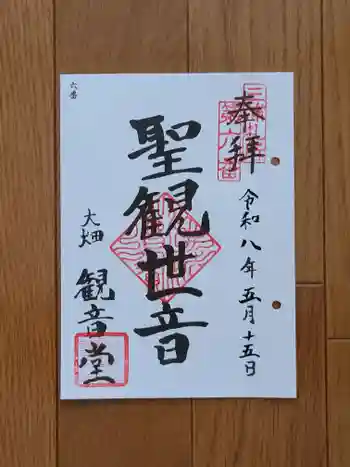 奉拝
令和八年五月十五日
聖観世音
大畑
観音堂
六番